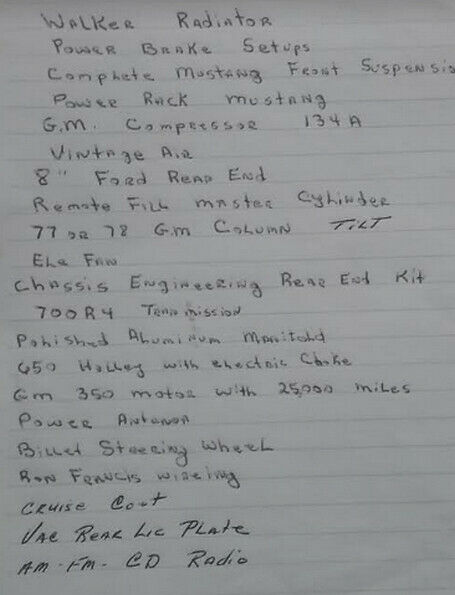 Walker Radiator
Power Brake Setups
Complete Mustang Front Suspensio
Power Rack Mustang
G.M. Compressor 134A
Vintage Air
8" Ford Rear End
Remote Fill Master Cylinder
77 or 78 G.M Column TILT
Ele Fan
Chassis Engineering Rear End Kit
700R4 Tranmission
Polished Aluminum Manifold
650 Holley with electric Choke
Gm 350 motor with 25,000 miles
Power Antenna
Billet Steering Wheel
Ron Francis wireing
CRUISE Cont
VAC REAR Lic PLATE
AM-FM-CD Radio